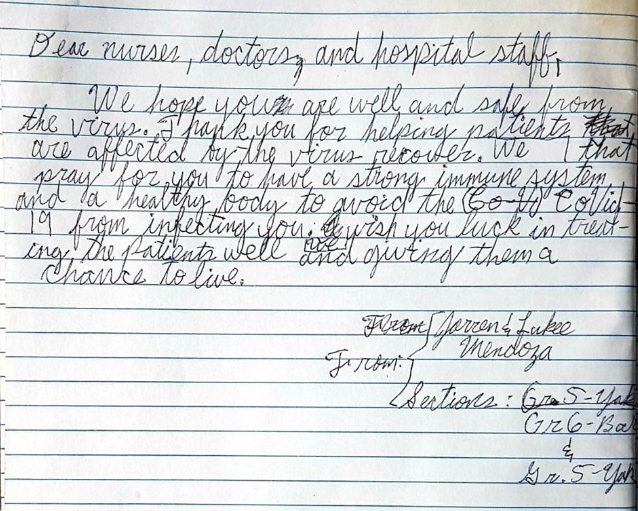 Dear nurses, doctors, and hospital staff,
We hope you are well and safe from
the virus. Thank you for helping patients that
are affected by the virus recover. We
pray for you to have a strong immune system
and a healthy body to avoid the Co-Vi CoVid-
19 from infecting you. wish you luck in treat-
ing the patients well and giving them a
chance to live.
From Jarren & Lukee
Mendoza
From:
Sections: Gr. 5-Yak
Gr 6-Ba
&
Gr. 5-Yak